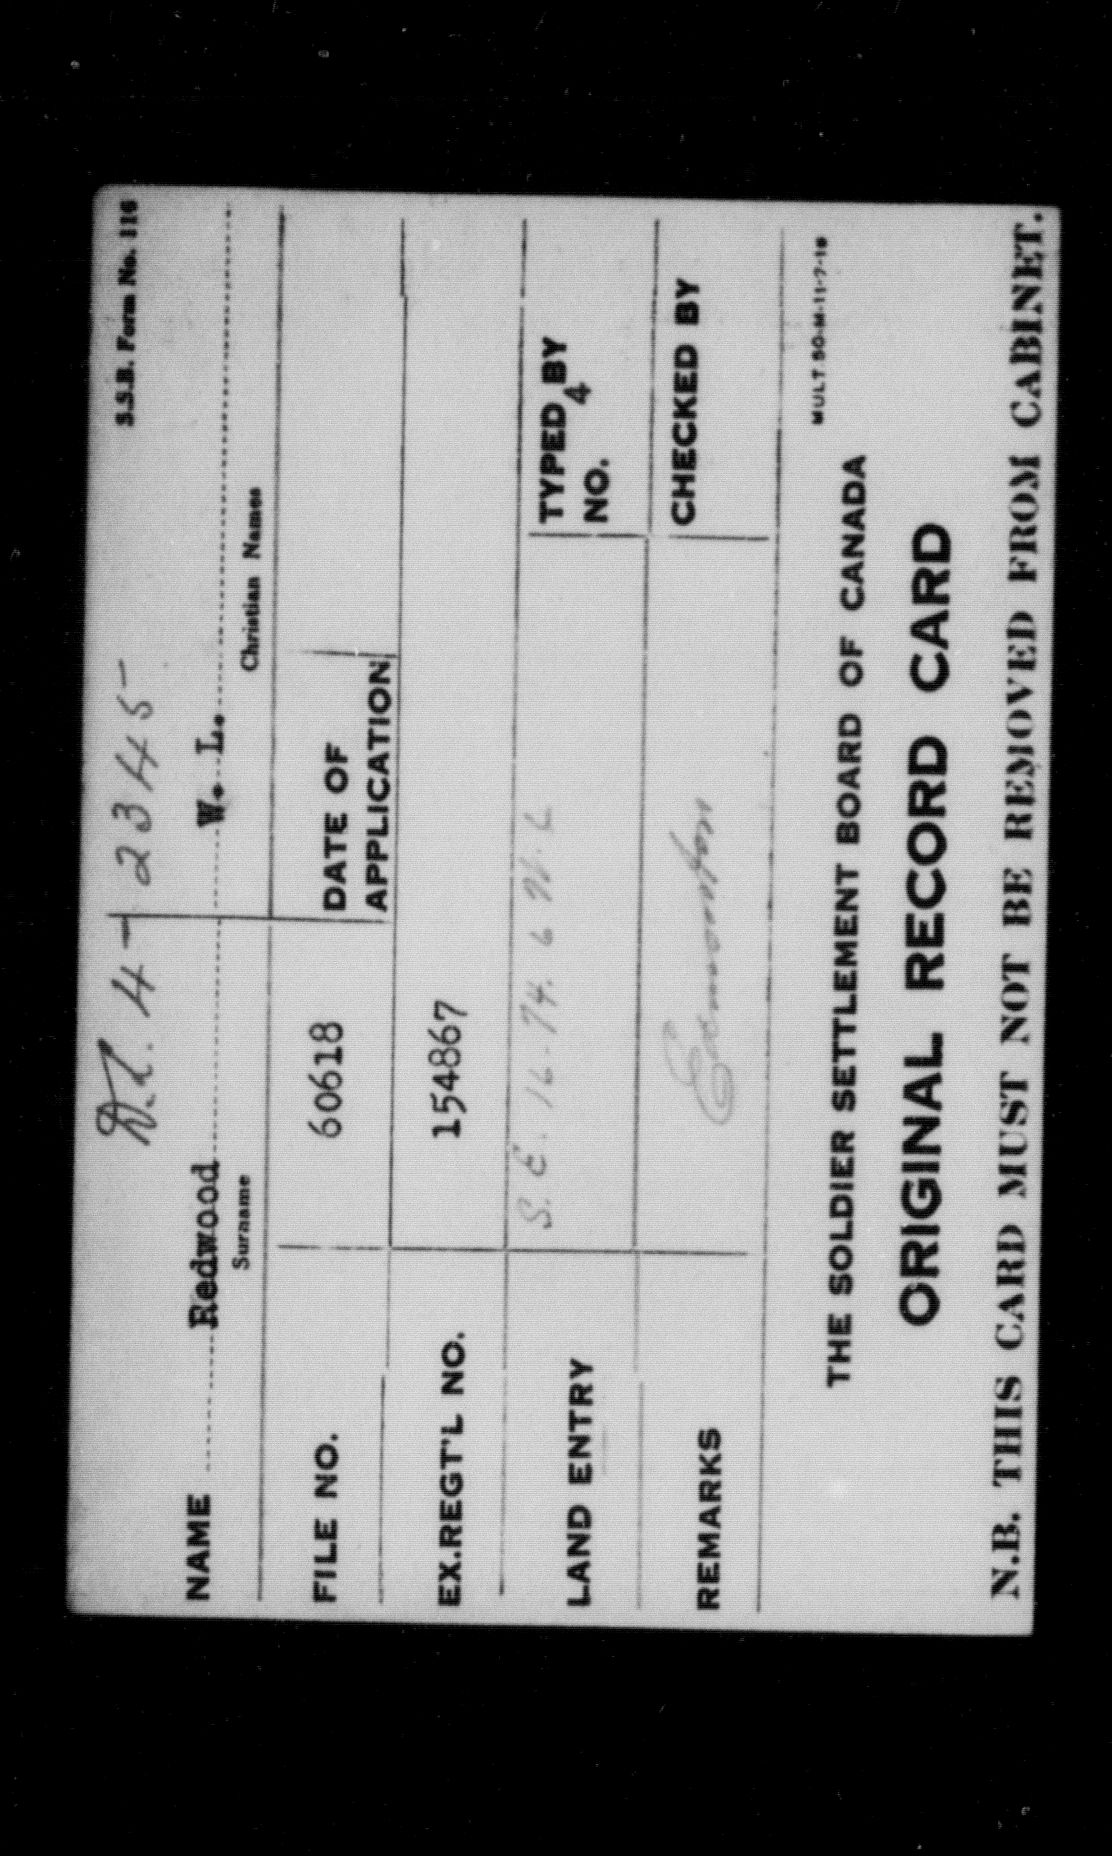 S.S.B. Form No. 116
D.L. 4-2345-
NAME Redwood W. L.
Surname Christian Names
FILE NO. 60618 DATE OF APPLICATION
EX.REGT'L NO. 154867
LAND ENTRY S.E. 16-74. 6 W.6 TYPED BY NO. 4
REMARKS Edmonton CHECKED BY
MULT 50-M-11-7-19
THE SOLDIER SETTLEMENT BOARD OF CANADA
ORIGINAL RECORD CARD
N.B. THIS CARD MUST NOT BE REMOVED FROM CABINET.